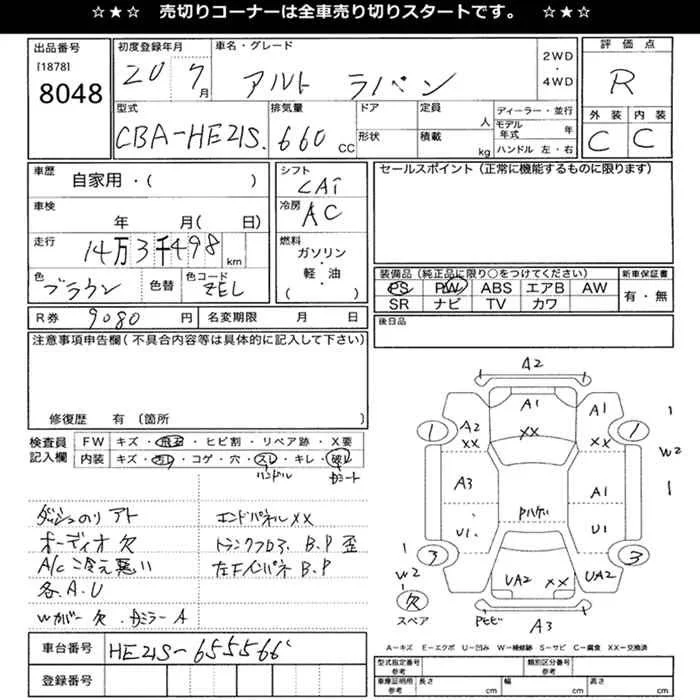 ☆★☆ 売切りコーナーは全車売り切りスタートです。 ☆★☆
出品番号
[1878]
8048
初度登録年月
20 7月
車名・グレード
アルト ラパン
2WD
・
4WD
評価点
R
外装 内装
C C
型式
CBA-HE21S.
排気量
660 CC
ドア
形状
定員 人
積載 kg
ディーラー・並行
モデル年式 年
ハンドル 左・右
車歴 自家用・( )
車検 年 月(日)
走行 14万3千498 km
色 ブラウン
色替
色コード ZEL
シフト
CAT
冷房
AC
燃料
ガソリン
・
軽・油
( )
セールスポイント(正常に機能するものに限ります)
装備品(純正品に限り○をつけてください)
PS PW ABS エアB AW
SR ナビ TV カワ
新車保証書
有・無
R券 9080 円
名変期限 月 日
後日品
注意事項申告欄(不具合内容等は具体的に記入して下さい)
修復歴 有(箇所 )
検査員
記入欄
FW キズ・飛石・ヒビ割・リペア跡・X要
内装 キズ・汚レ・コゲ・穴・スレ・キレ・破レ
ハンドル
ダッシュのりアト
オーディオ欠
A/C冷え悪い
各A.U
Wカバー欠
ミラーA
エンドパネルXX
トランクフロア B.P歪
B.P
A2
A1
XX
A1
XX
A2
XX
1
1
W2
A3
A1
U1.
U1
3
3
W2
UA2 XX
UA2
A3
欠
スペア
A−キズ E−エクボ U−凹み W−補修跡 S−サビ C−腐食 XX−交換済
車台番号 HE21S-655566
登録番号
型式指定番号
参考
類別区分番号
参考
車庫証明用
参考
長さ cm 幅 cm 高さ cm